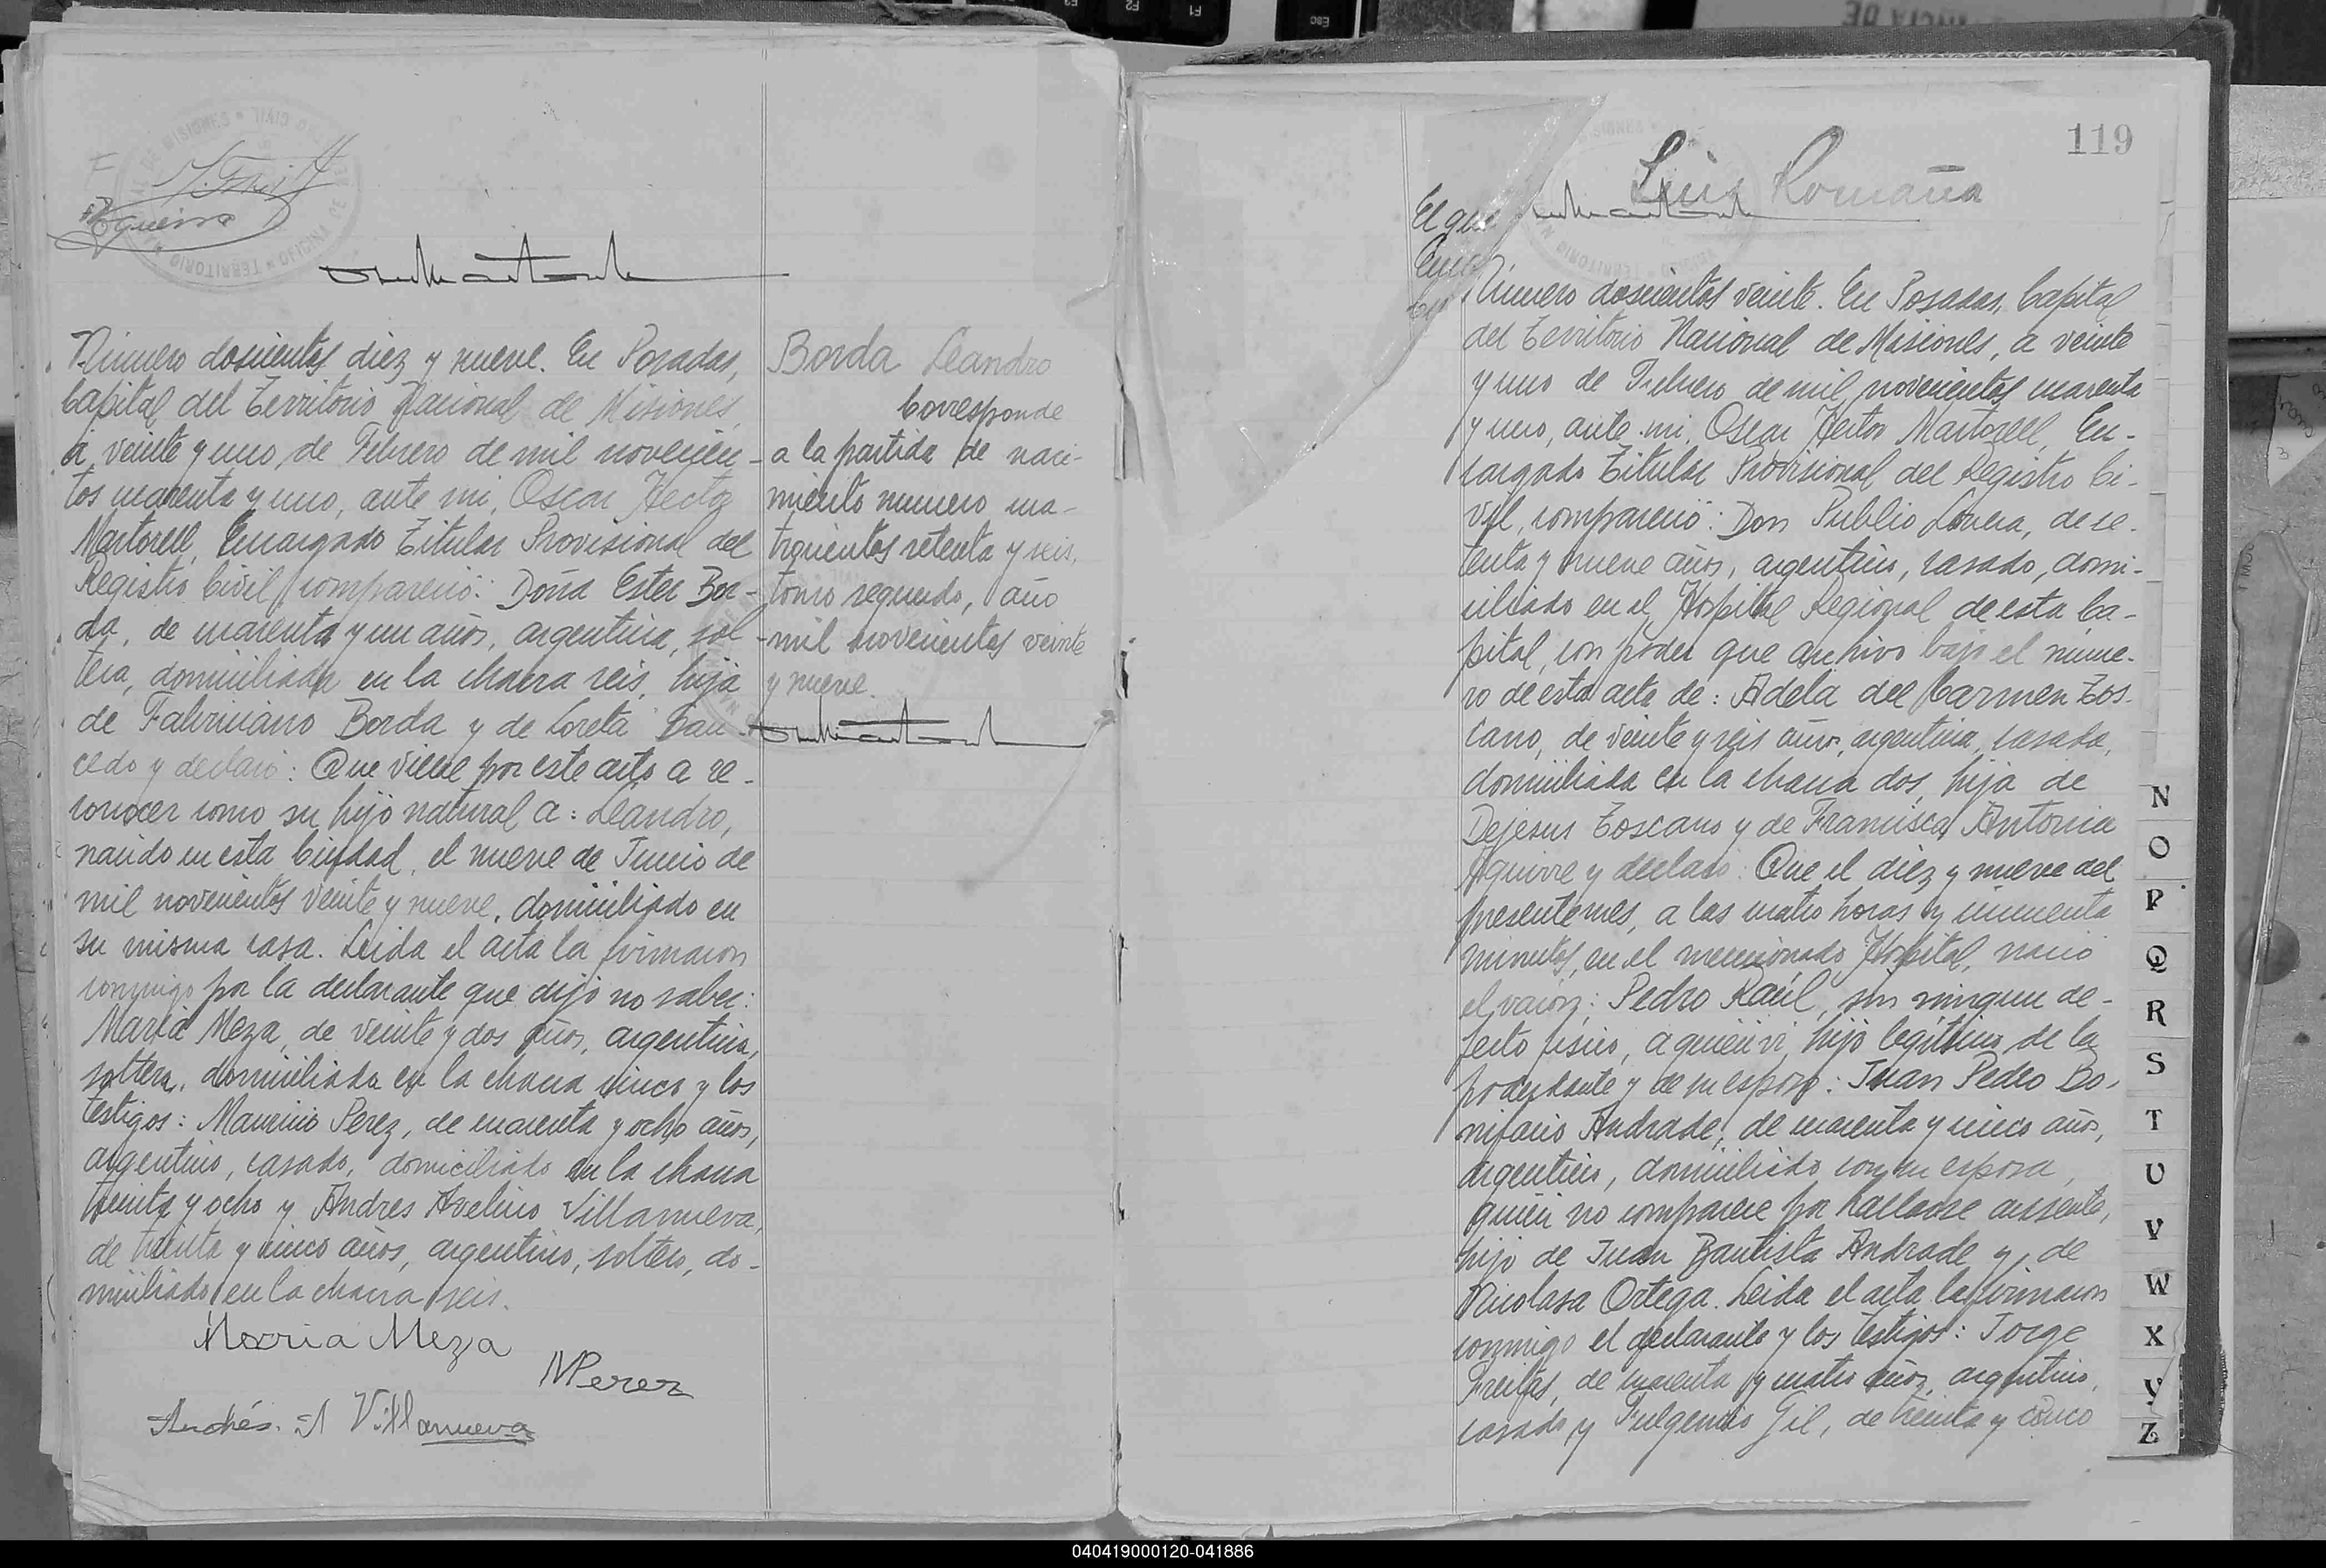 Eguerra
Número doscientos diez y nueve. En Posadas,
Capital del Territorio Nacional de Misiones,
a veinte y uno de Febrero de mil novecien-
tos cuarenta y uno, ante mi, Oscar Hector
Martorell, Encargado Titular Provisional del
Registro Civil, compareció: Doña Ester Bor-
da, de cuarenta y un años, argentina, sol-
tera, domiciliada en la chacra seis, hija
de Fabriciano Borda y de Loreta Sau-
cedo y declaró: Que viene por este acto a re-
conocer como su hijo natural a: Leandro,
nacido en esta Ciudad, el nueve de Junio de
mil novecientos veinte y nueve, domiciliado en
su misma casa. Leida el acta la firmaron
conmigo por la declarante que dijo no saber:
Maria Meza, de veinte y dos años, argentina,
soltera, domiciliada en la chacra cinco y los
testigos: Mauricio Perez, de cuarenta y ocho años,
argentino, casado, domiciliado en la chacra
treinta y ocho y Andres Avelino Villanueva,
de treinta y cinco años, argentino, soltero, do-
miciliado en la chacra seis.
Maria Meza
MPerez
Andrés. A Villanueva
Borda Leandro
Corresponde
a la partida de naci-
miento numero cua-
trocientos setenta y seis,
tomo segundo, año
mil novecientos veinte
y nueve.
119
Luis Romaña
El que
Número doscientos veinte. En Posadas, Capital
del Territorio Nacional de Misiones, a veinte
y uno de Febrero de mil novecientos cuarenta
y uno, ante mi, Oscar Hector Martorell, En-
cargado Titular Provisional del Registro Ci-
vil, compareció: Don Publio Lovera, de se-
tenta y nueve años, argentino, casado, domi-
ciliado en el Hospital Regional de esta Ca-
pital, con poder que archivo bajo el núme-
ro de esta acta de: Adela del Carmen Tos-
cano, de veinte y seis años, argentina, casada,
domiciliada en la chacra dos, hija de
Dejesus Toscano y de Francisca Antonia
Aguirre y declaró: Que el diez y nueve del
presente mes, a las cuatro horas y cincuenta
minutos, en el mencionado Hospital, nació
el varón: Pedro Raúl, sin ningun de-
fecto fisico, a quien vi, hijo legitimo de la
poderdante y de su esposo: Juan Pedro Bo-
nifacio Andrade, de cuarenta y cinco años,
argentino, domiciliado con su esposa,
quien no comparece por hallarse ausente,
hijo de Juan Bautista Andrade y de
Nicolasa Ortega. Leida el acta la firmaron
conmigo el declarante y los testigos: Jorge
Freitas, de cuarenta y cuatro años, argentino,
casado y Fulgencio Gil, de treinta y cinco
N
O
P
Q
R
S
T
U
V
W
X
Y
Z
040419000120-041886